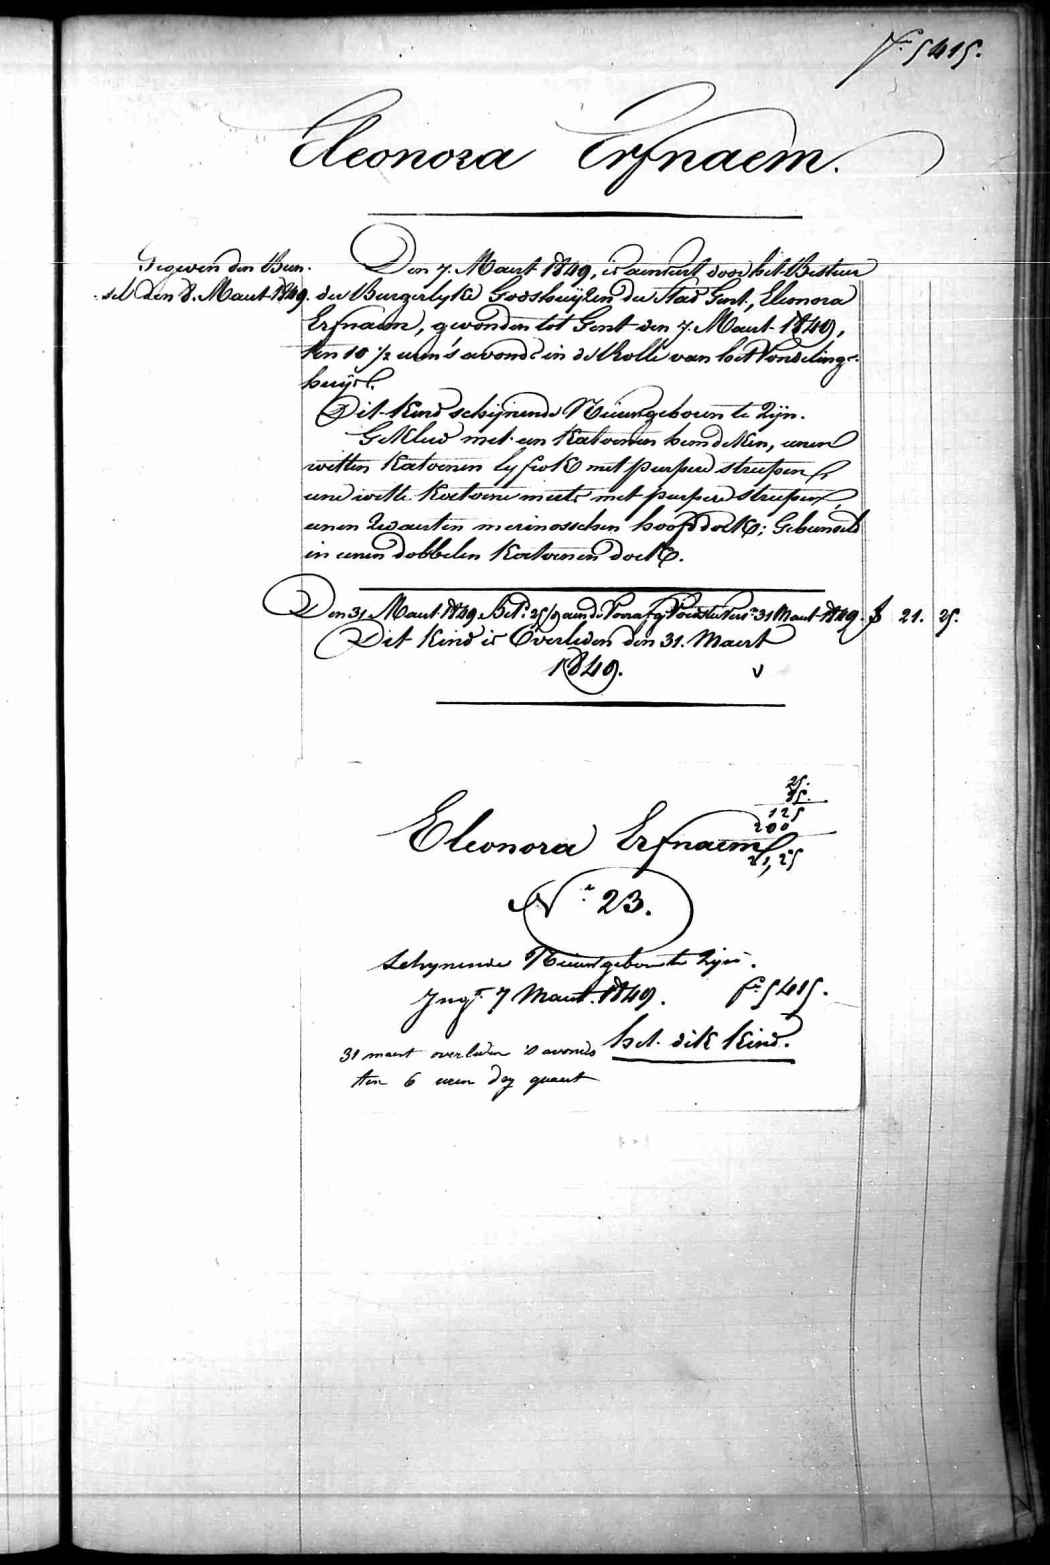 Fo 5415.
Eleonora Erfnaem.
Gegeven den Bun-
sel den 8. Maert 1849.
Den 7. Maert 1849, is aenveert door het Bestuer
der Burgerlyke Godshuijzen der Stad Gent, Eleonora
Erfnaem, gevonden tot Gent den 7. Maert 1849,
ten 10 1/2 uren 's avonds in de Rolle van het Vondeling-
huijs.
Dit kind schijnende Nieuwgeboren te Zijn.
Gekleed met een katoenen hemdeken, eenen
witten katoenen lyfrok met purpere streepen,
eene witte katoene muts met purpere streepen,
eenen Zwarten merinosschen hoofddoek; Gebunseld
in eenen dobbelen katoenen doek.
Den 31 Maert 1849 Bet. 25/ aen de Voorafg. Voedster 31 Maert 1849. f 21. 25.
Dit kind is Overleden den 31. Maert
1849.
25.
85.
125
200
21,25
Eleonora Erfnaem
No 23.
schynende Nieuwgeboren te Zijn.
Ing. 7 Maert 1849. fo 5415.
het dik kind.
31 maert overleden 's avonds
ten 6 uren dry quaert